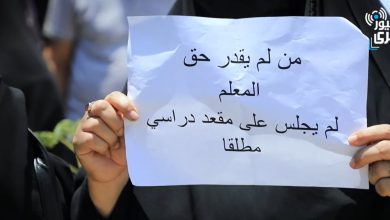 من لم يقدر حق
المعلم
لم يجلس على مقعد دراسي
مطلقا